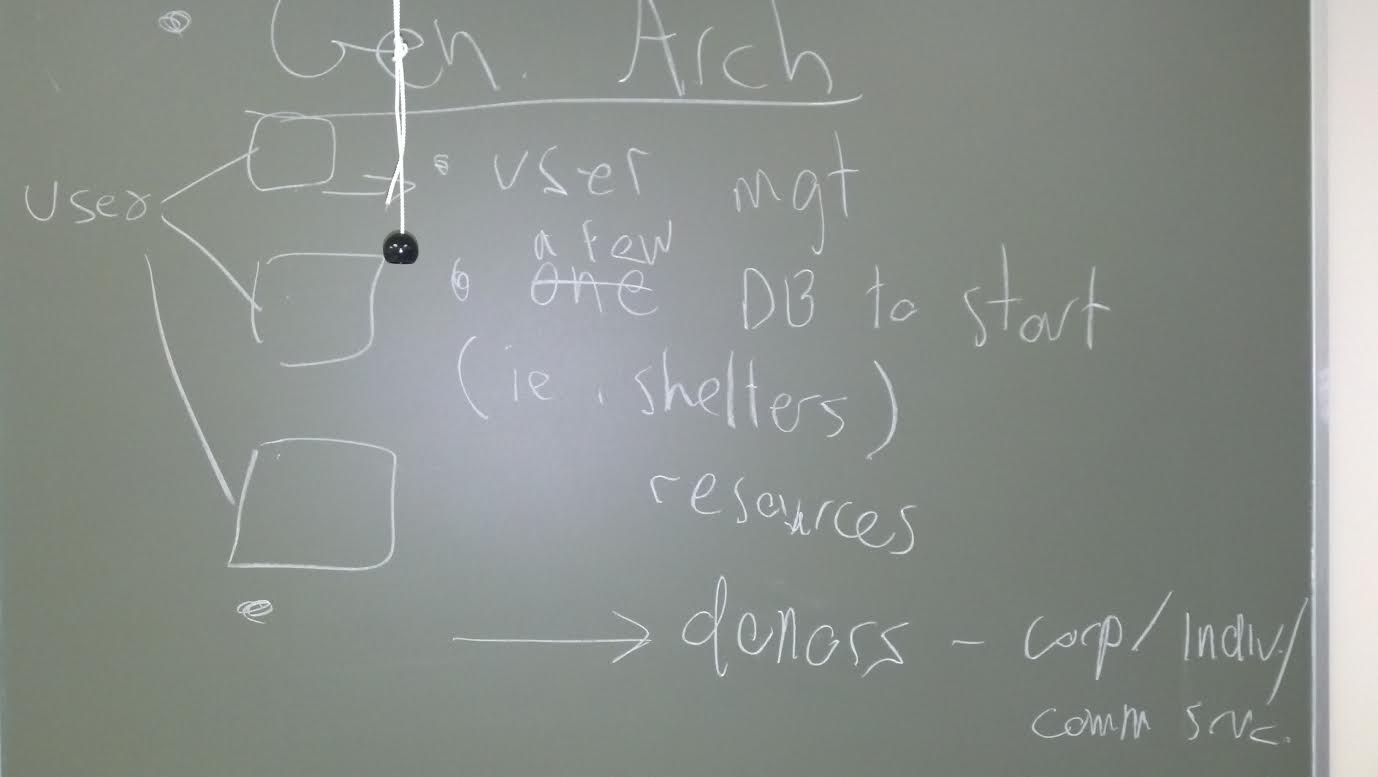 Gen. Arch
user
user mgt
a few
one DB to start
(ie. shelters)
resources
donors - corp/indiv/
comm srvc.